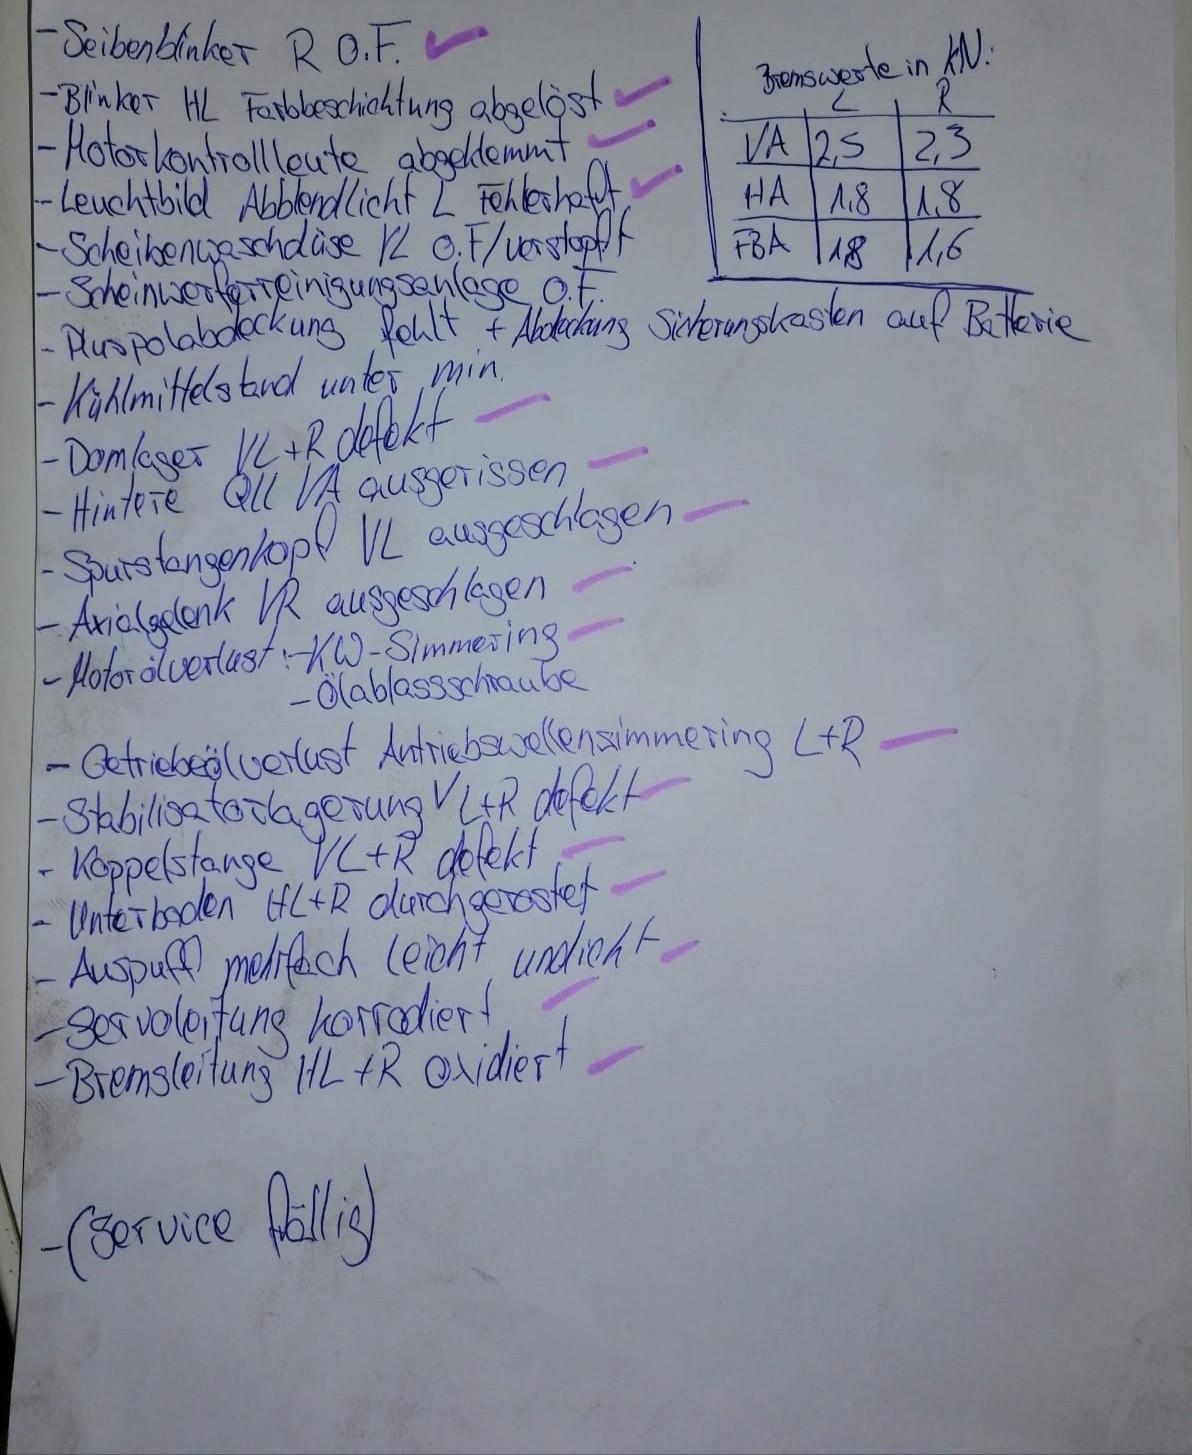 - Seibenblinker R O.F.
- Blinker HL Farbbeschichtung abgelöst
- Motorkontrollleute abgeklemmt
- Leuchtbild Abblendlicht L Fehlerhaft
- Scheibenwaschdüse VL O.F/verstopft
- Scheinwerferreinigungsanlage O.F.
- Pluspolabdeckung fehlt + Abdeckung Sicherungskasten auf Batterie
- Kühlmittelstand unter min.
- Domlager VL+R defekt
- Hintere QLL VA ausgerissen
- Spurstangenkopf VL ausgeschlagen
- Axialgelenk VR ausgeschlagen
- Motorölverlust: - KW-Simmering
- Ölablassschraube
- Getriebeölverlust Antriebswellensimmering L+R
- Stabilisatorlagerung VL+R defekt
- Koppelstange VL+R defekt
- Unterboden HL+R durchgerostet
- Auspuff mehrfach leicht undicht
- Servoleitung korrodiert
- Bremsleitung HL+R oxidiert
- (Service fällig)
Bremswerte in kN:
L R
VA 2,5 2,3
HA 1,8 1,8
FBA 1,8 1,6